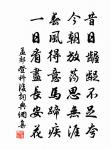 昔日齷齪不足夸
今朝放蕩思無涯
春風得意馬蹄疾
一日看盡長安花
孟郊登科後詞典網書